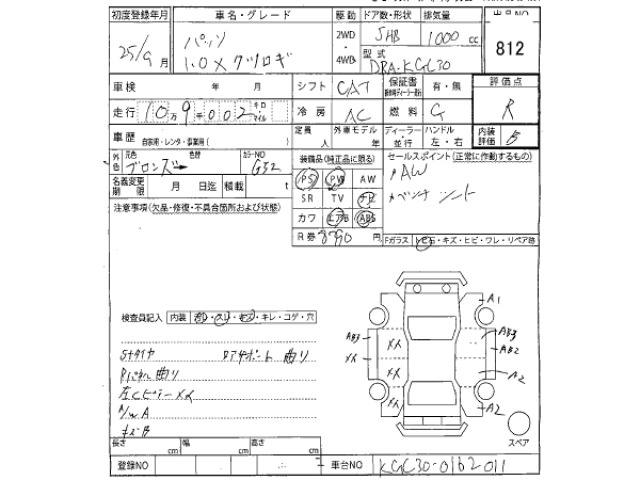 初度登録年月 車名・グレード 駆動 ドア数・形状 排気量 出品NO
25/9月 パッソ 2WD・4WD 5HB 1000cc 812
1.0X クツロギ 型式 DBA-KGC30
車検 年 月 シフト CAT 保証書 有・無 評価点
走行 10万9002 キロ・マイル 冷房 AC 燃料 G R
車歴 自家用・レンタ・事業用( ) 定員 人 外車モデル 年 ディーラー 並行 ハンドル 左・右 内装評価 B
外色 元色 ブロンズ 色替 カラーNO G52 装備品(純正品に限る) セールスポイント(正常に作動するもの)
名義変更期限 月 日迄 積載 t PS PW AW AW
注意事項(欠品・修復・不具合箇所および状態) SR TV ナビ ベンチシート
カワ エアB ABS
R券 8790円 Fガラス トビ石・キズ・ヒビ・ワレ・リペア跡
検査員記入 内装 ・キレ・コゲ・穴
A1
AB3 AB3
メイ メイ AB2
Sタイヤ Dアサポート曲り
Rパネル曲り A2
左Cピラーメイ メイ
A/W A A2
キズB
スペア
長さ cm 幅 cm 高さ cm
登録NO 車台NO KGC30-0162011